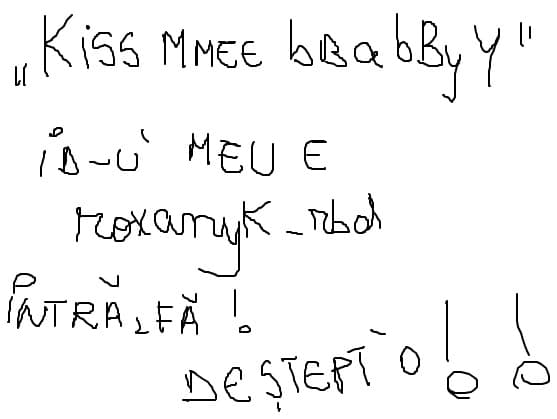 „KiSS MMEE bBabByY"
iD-U' MEU E
roxanyk_rbd
ÎNTRĂ, FĂ !
DEȘTEPT-O ! !